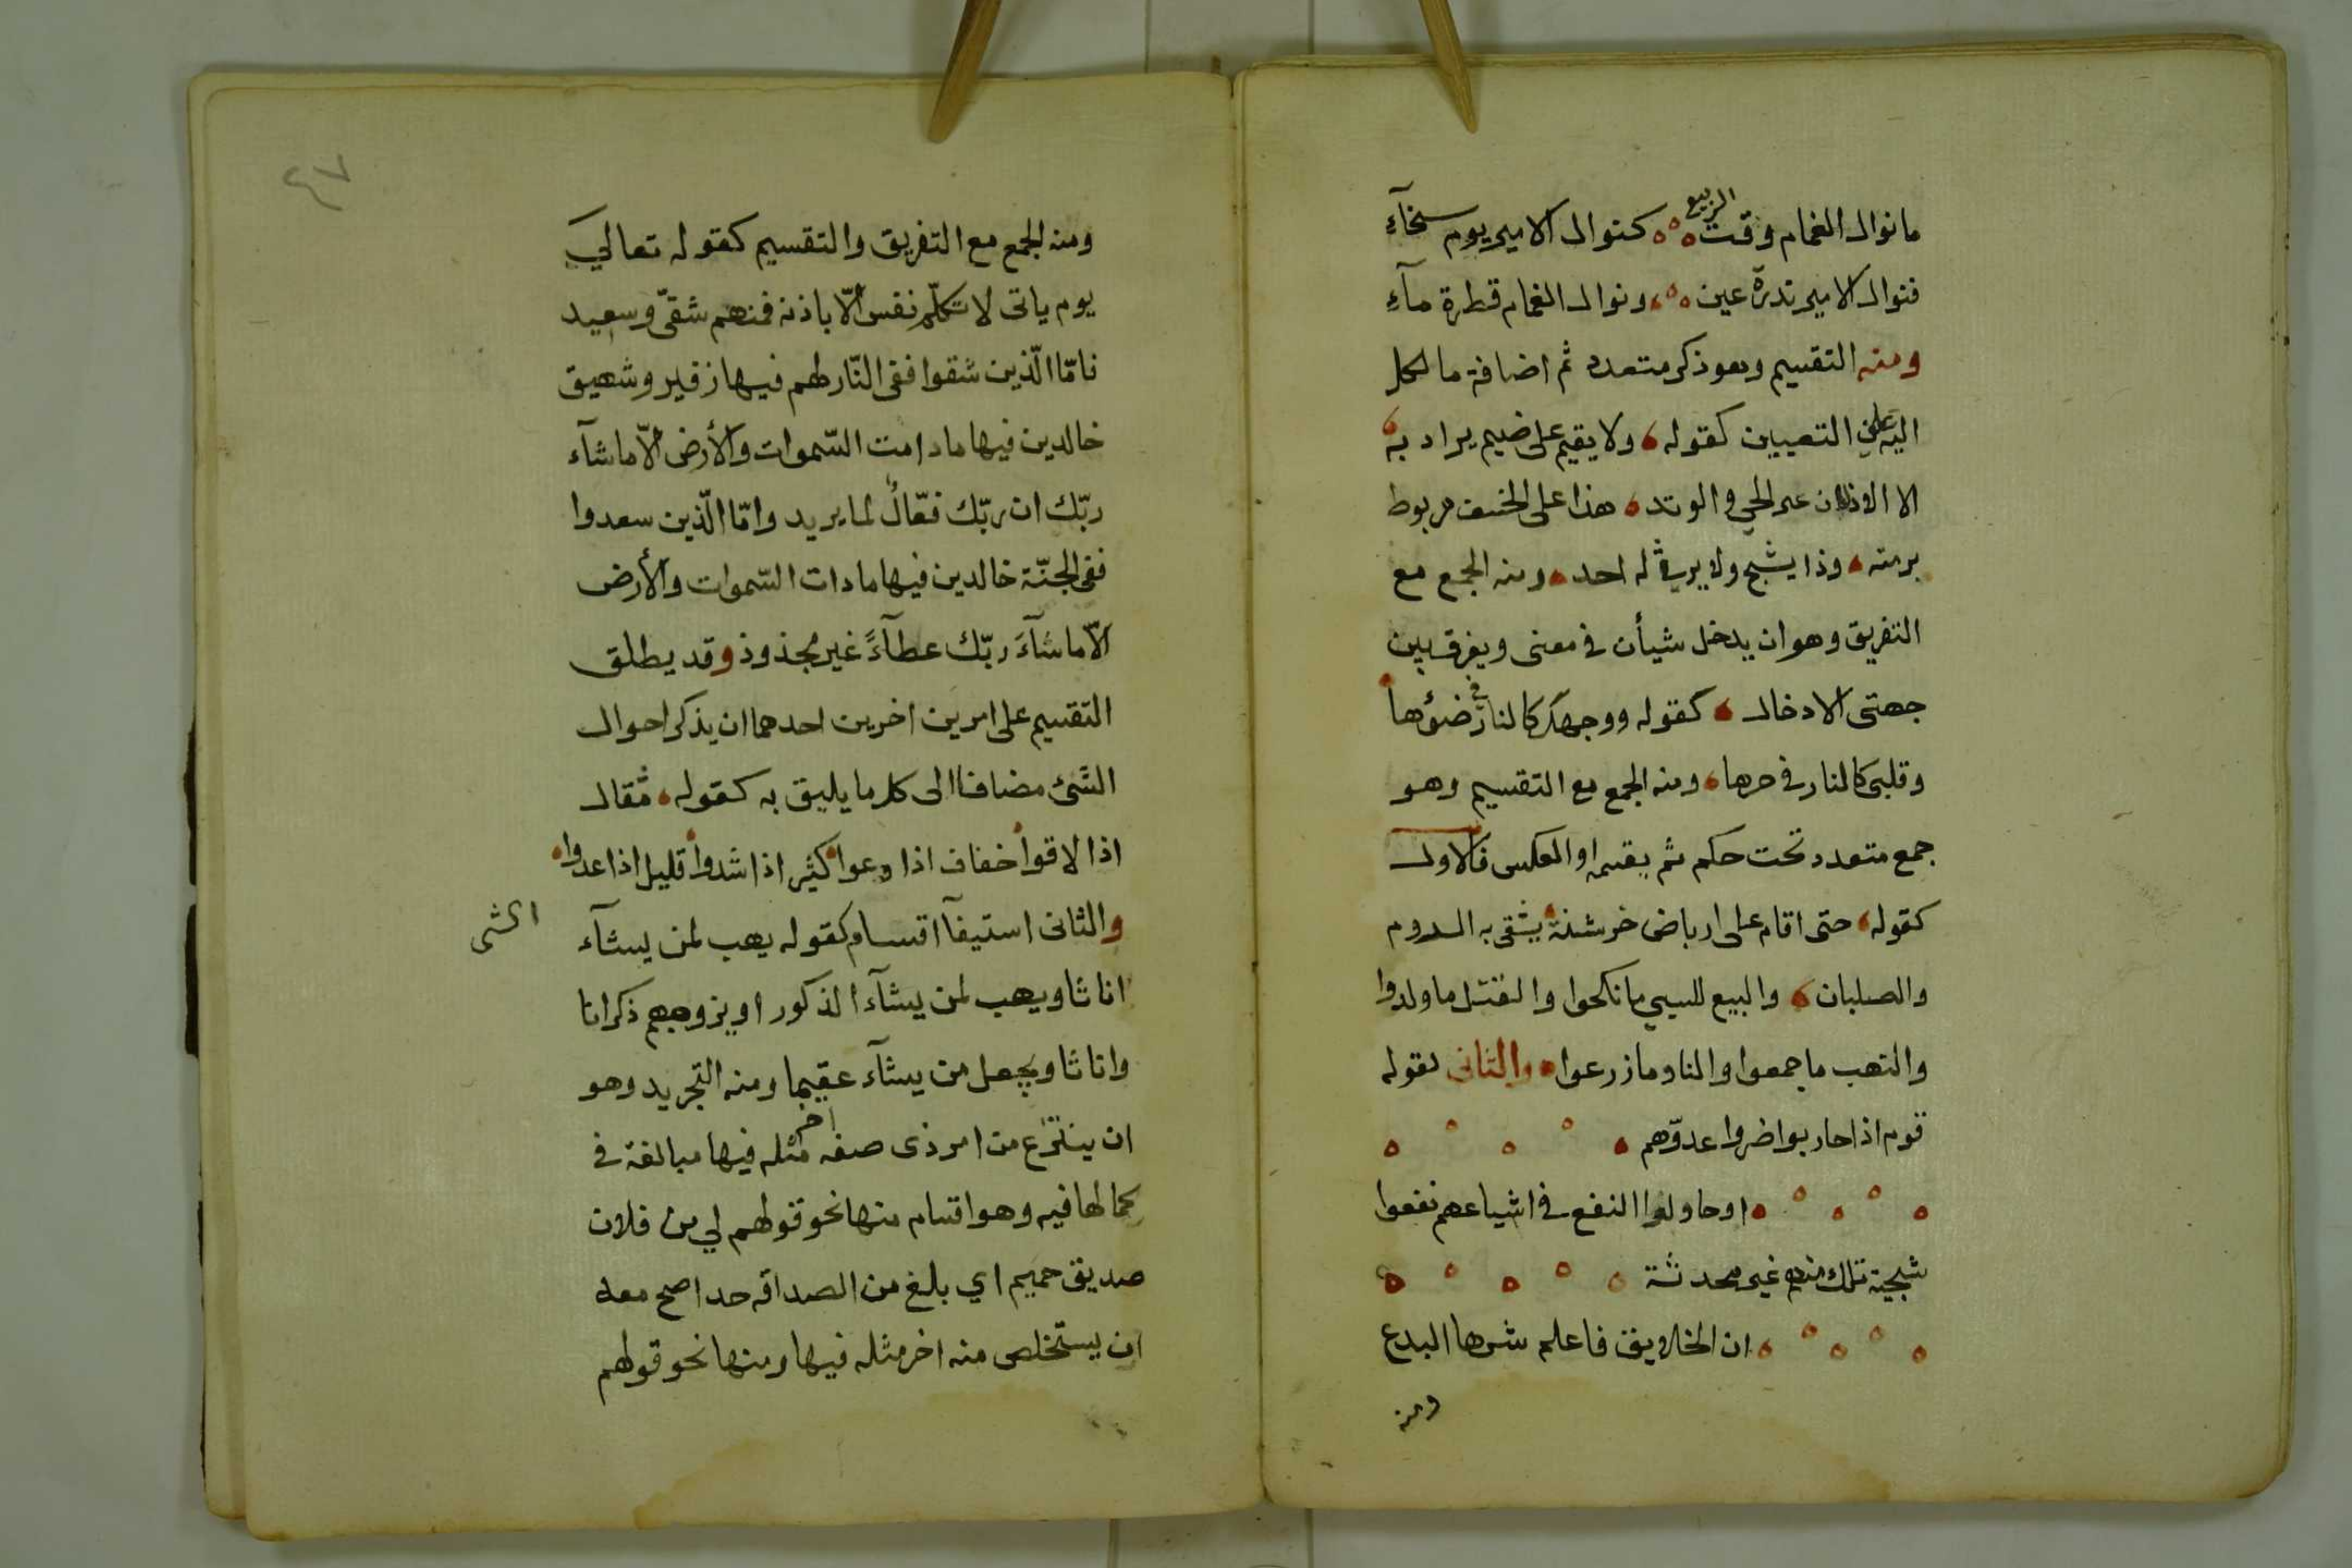 مانوال الغمام وقت الربيع كنوال الامير يوم سخآء
فنوال الامير بدرة عين ونوال الغمام قطرة مآء
ومنه التقسيم وهو ذكر متعدد ثم اضافة ما لكل
اليه على التعيين كقوله ولا يقيم على ضيم يراد به
الا الاذلان عير الحي والوتد هذا على الخسف مربوط
برمته وذا يشج ولا يرثى له احد ومنه الجمع مع
التفريق وهو ان يدخل شيأن في معنى ويفرق بين
جهتى الادخال كقوله ووجهك كالنار في ضوئها
وقلبى كالنار في حرها ومنه الجمع مع التقسيم وهو
جمع متعدد تحت حكم ثم يقسمه او العكس فالاول
كقوله حتى اقام على ارباض خرشنة يشقى به الروم
والصلبان والبيع للسبي ما نكحوا والقتل ما ولدوا
والنهب ما جمعوا والنار ما زرعوا والثانى كقوله
قوم اذا حاربوا ضروا عدوّهم
او حاولوا النفع في اشياعهم نفعوا
سجية تلك منهم غير محدثة
ان الخلايق فاعلم شرها البدع
ومنه
٤٧
ومنه الجمع مع التفريق والتقسيم كقوله تعالي
يوم ياتى لا تكلّم نفس الّا باذنه فمنهم شقىّ وسعيد
فامّا الّذين شقوا ففى النّار لهم فيها زفير وشهيق
خالدين فيها ما دامت السّموات والأرض الّا ماشآء
ربّك ان ربّك فعّالٌ لما يريد وامّا الّذين سعدوا
ففى الجنّة خالدين فيها ما دات السّموات والأرض
الّا ماشآءَ ربّك عطآءً غير مجذوذ وقد يطلق
التقسيم على امرين اخرين احدهما ان يذكر احوال
الشئ مضافا الى كل ما يليق به كقوله ثقال
اذا لاقوا خفاف اذا دعوا كثير اذا شدوا قليل اذا عدوا
والثانى استيفآ اقسام الشى كقوله يهب لمن يشآء
اناثا ويهب لمن يشآء الذكور او يزوجهم ذكرانا
واناثا ويجعل من يشآء عقيما ومنه التجريد وهو
ان ينتزع من امر ذى صفه اخر مثله فيها مبالغة في
كمالها فيه وهو اقسام منها نحو قولهم لي من فلان
صديق حميم اي بلغ من الصداقه حدا صح معه
ان يستخلص منه اخر مثله فيها ومنها نحو قولهم